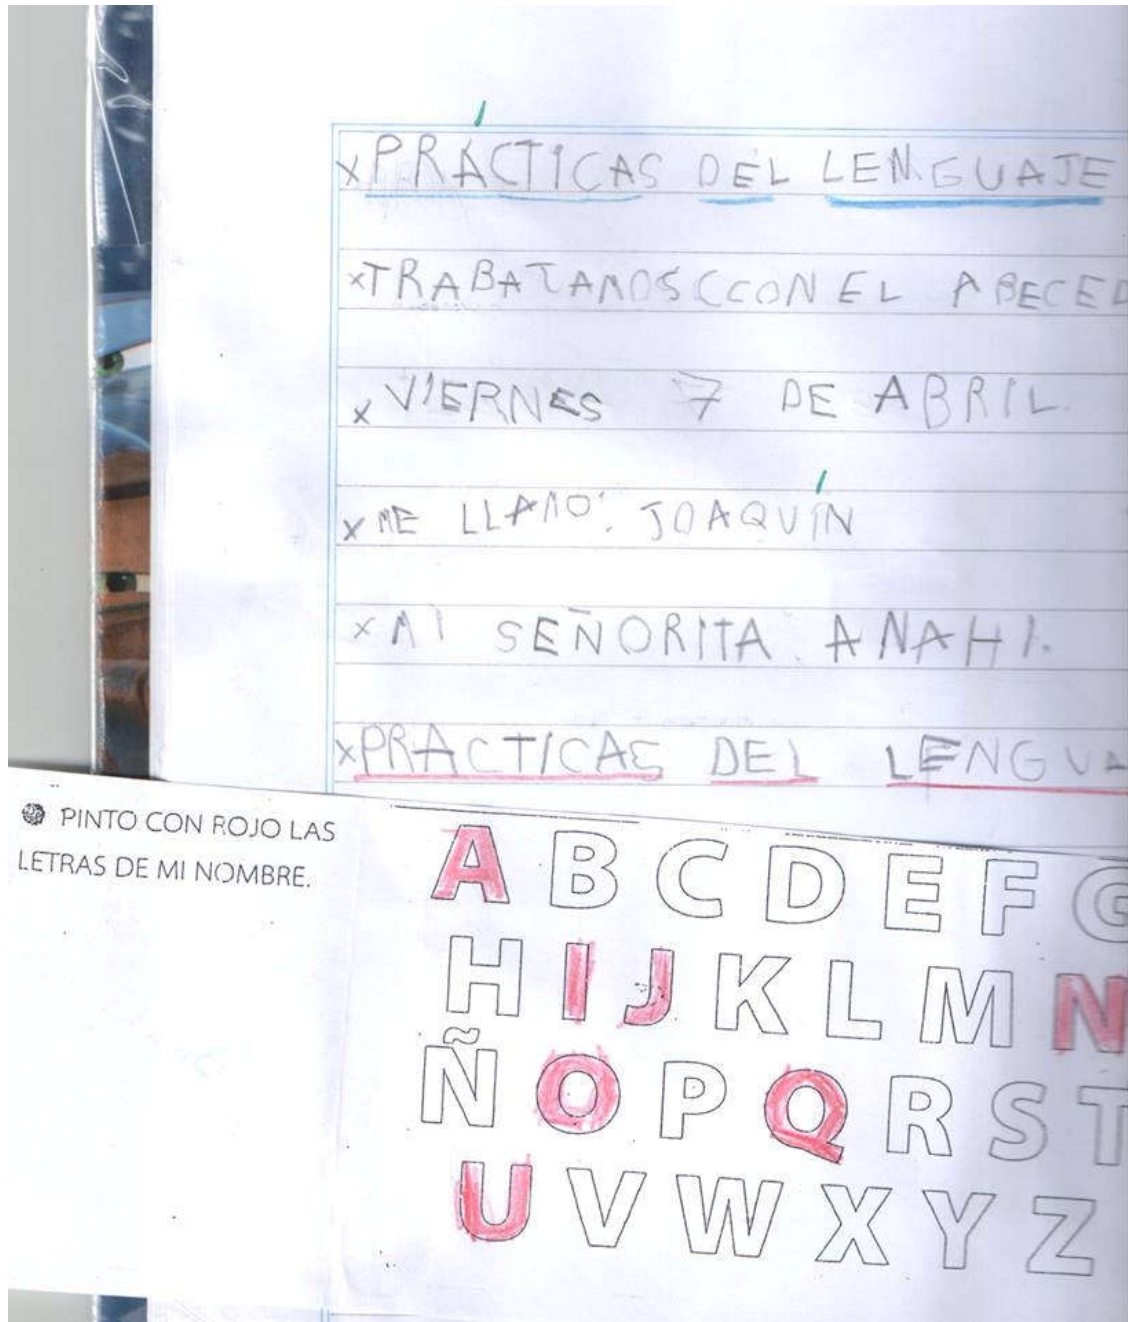 x PRÁCTICAS DEL LENGUAJE
x TRABATAMOS CCON EL ABECED
x VIERNES 7 DE ABRIL.
x ME LLAMO: JOAQUÍN
x MI SEÑORITA: ANAHI.
x PRACTICAS DEL LENGUA
PINTO CON ROJO LAS
LETRAS DE MI NOMBRE.
A B C D E F G
H I J K L M N
Ñ O P Q R S T
U V W X Y Z